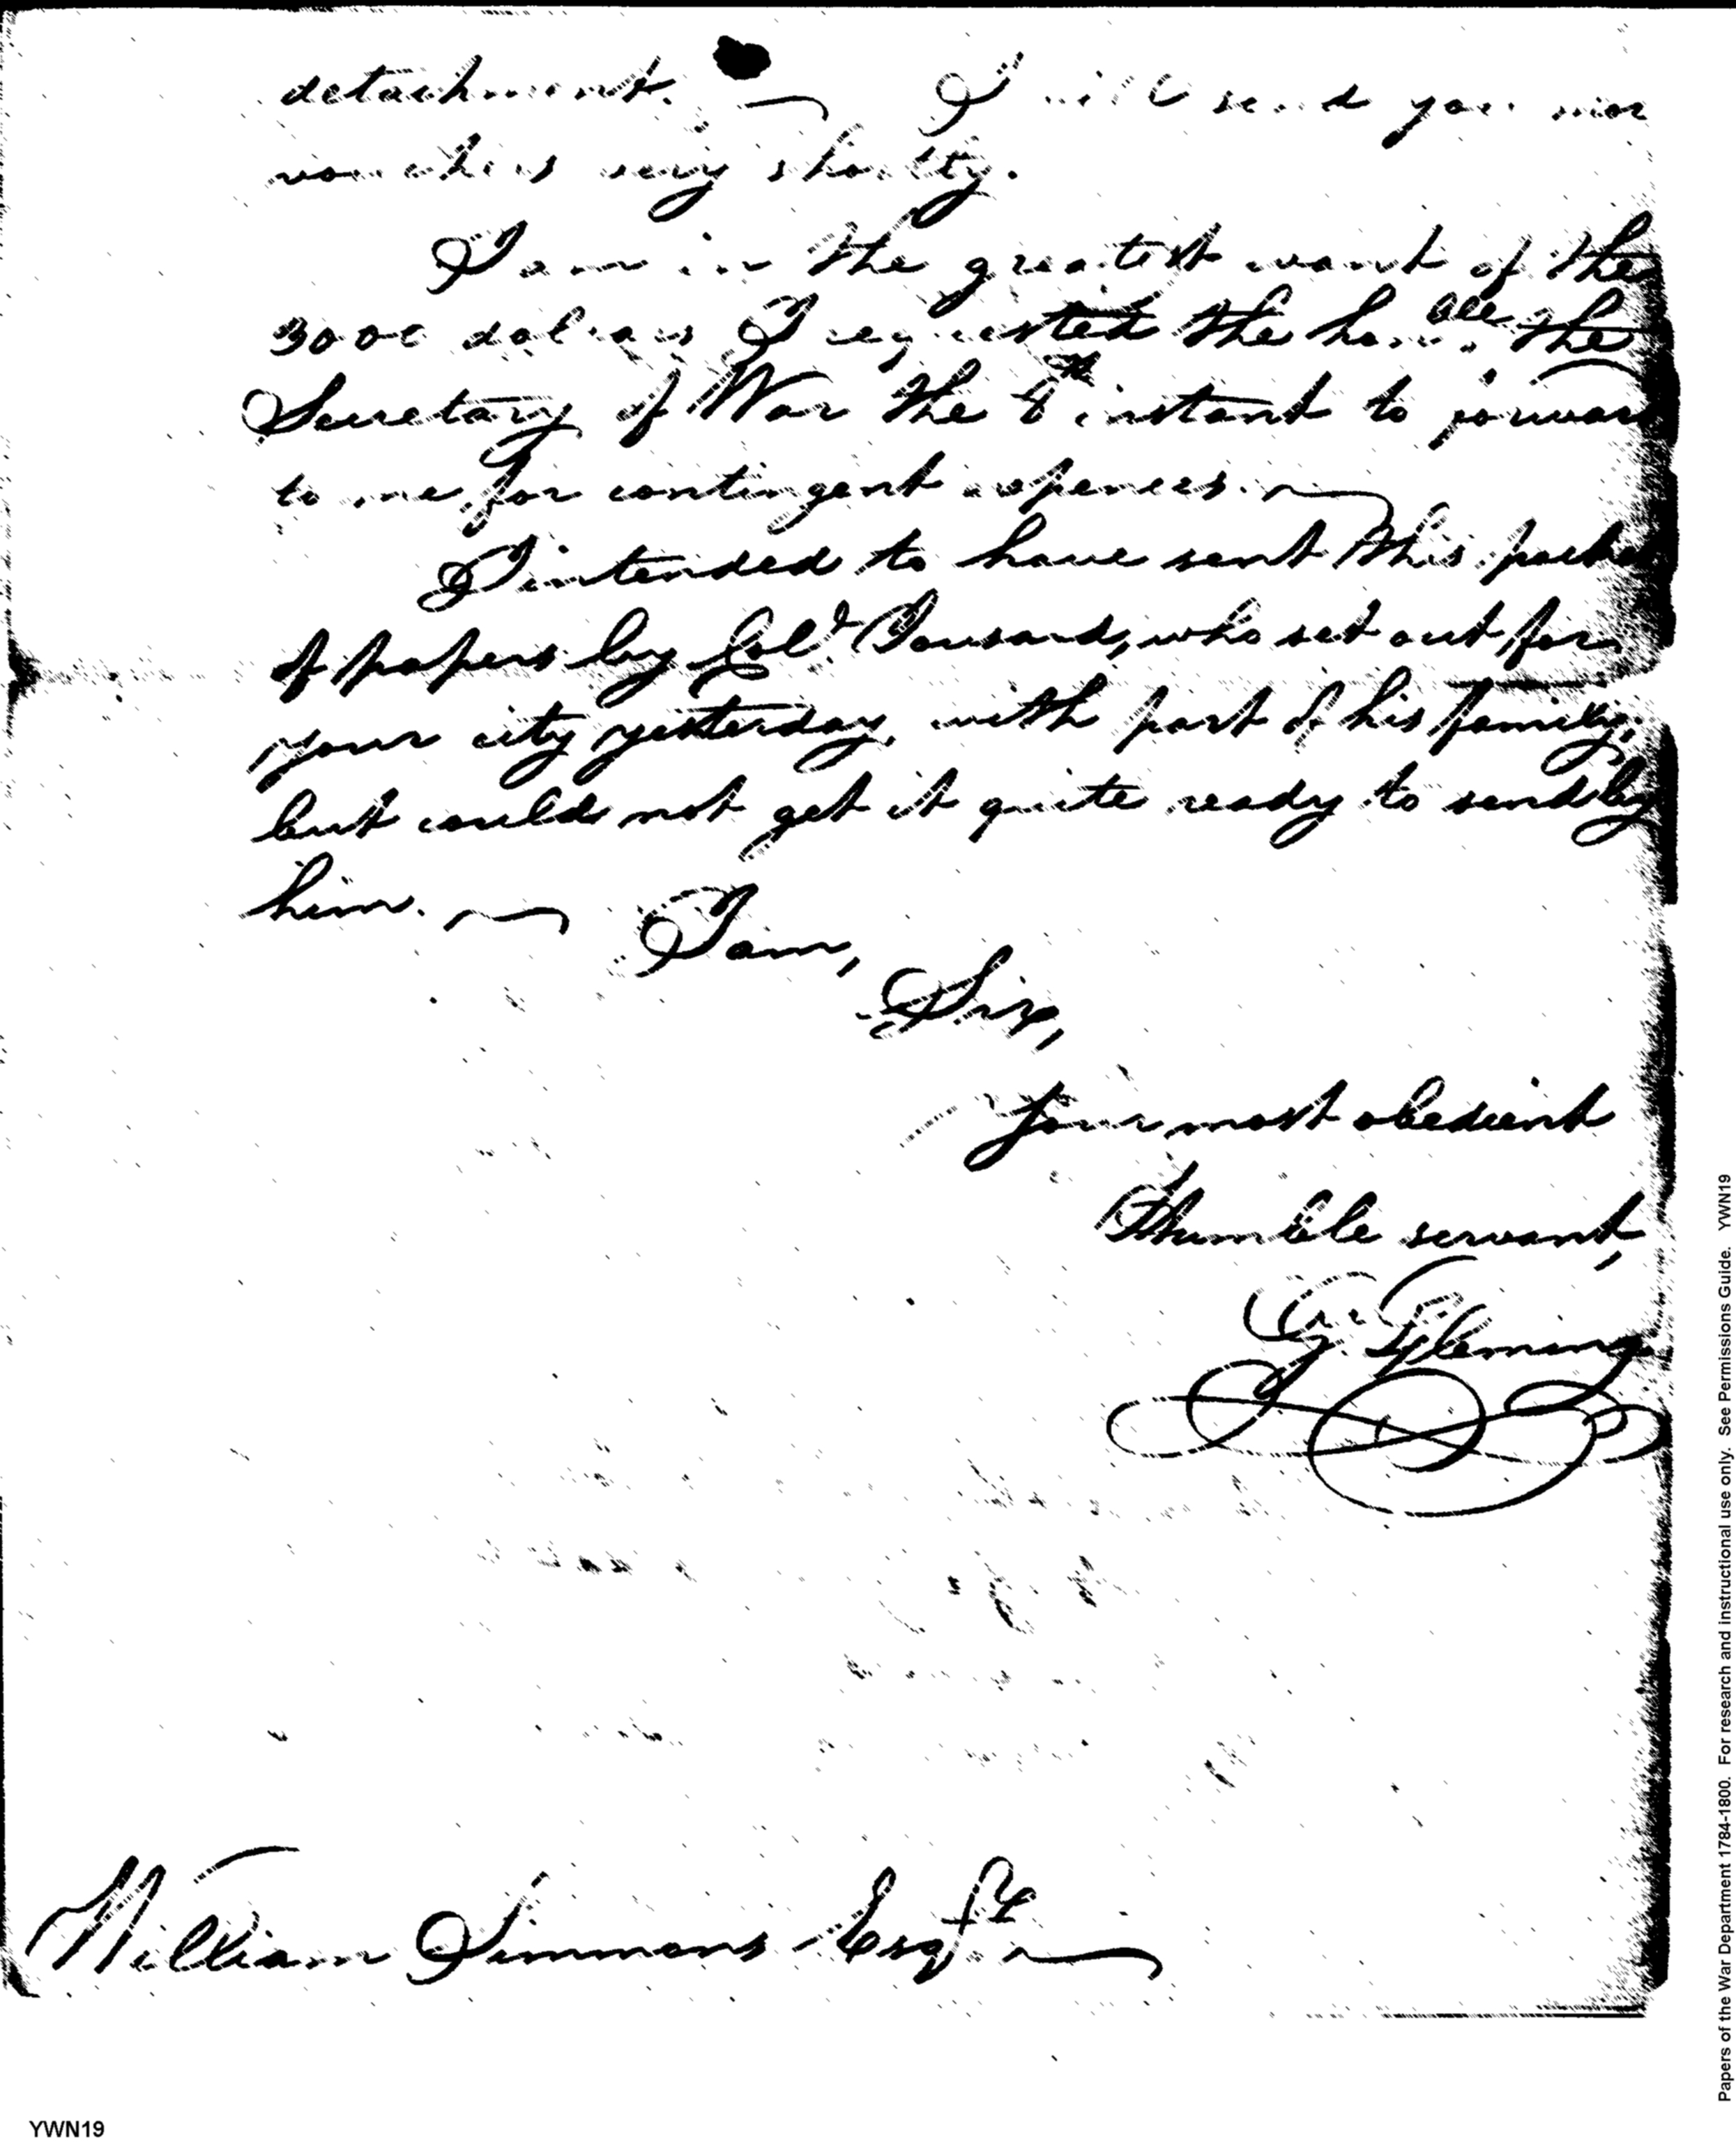 detachment. — I will send you more
vouchers very shortly.
I am in the greatest want of the
3000 dollars I requested the honble the
Secretary of War the 8th instant to forward
to me for contingent expences. —
I intended to have sent this packet
of papers by Colo. Tousard, who set out for
your city yesterday, with part of his family,
but could not get it quite ready to send by
him. — I am,
Sir,
Your most obedient
Humble servant,
G. Fleming
William Simmons Esqre. —
YWN19
Papers of the War Department 1784-1800. For research and instructional use only. See Permissions Guide. YWN19